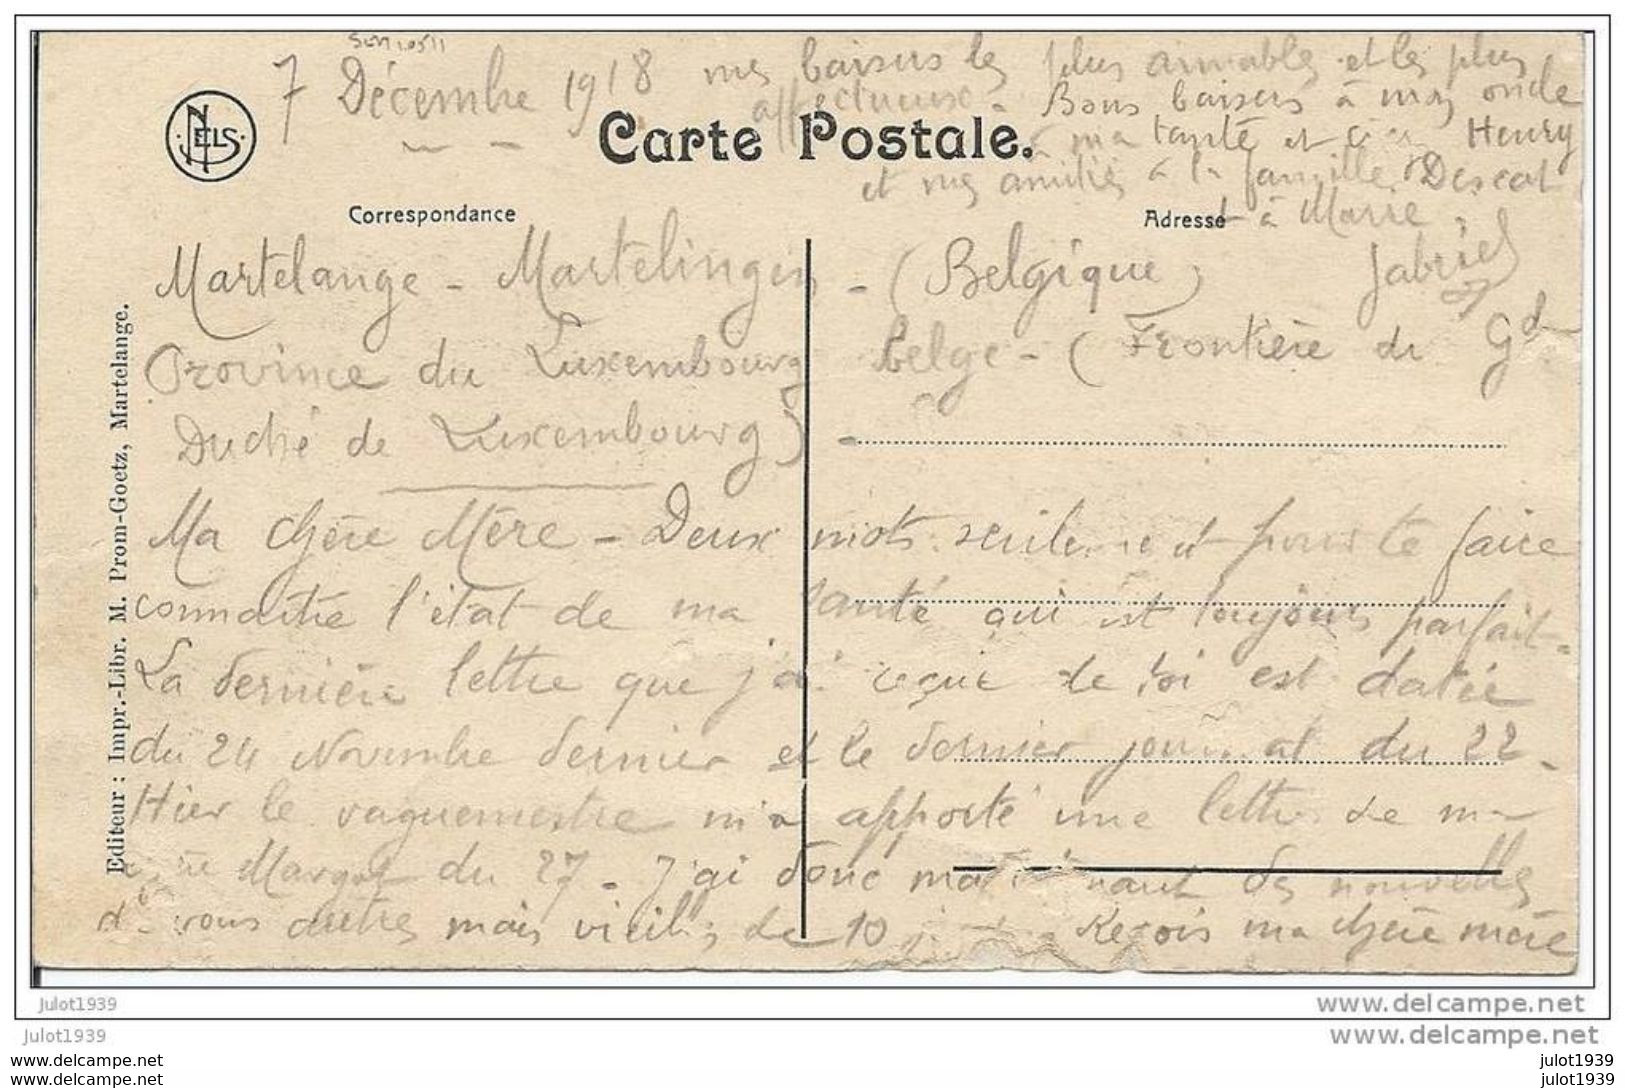 7 Décembre 1918
mes baisers les plus aimables et les plus
affectueux. Bons baisers à mon oncle
à ma tante et Henry
et mes amitiés à la famille Descat
et à Marie.
NELS
Carte Postale.
Correspondance
Adresse
Martelange - Martelingen - (Belgique) Gabriel
Province du Luxembourg belge - (Frontière du Gd
Duché de Luxembourg)
Ma chère Mère - Deux mots seulement pour te faire
connaître l'état de ma santé qui est toujours parfait.
La dernière lettre que j'ai reçue de toi est datée
du 24 Novembre dernier et le dernier journal du 22.
Hier le vaguemestre m'a apporté une lettre de ma
Margot du 27. J'ai donc maintenant des nouvelles
de vous autres mais vieilles de 10 Reçois ma chère mère
Editeur : Impr.-Libr. M. Prom-Goetz, Martelange.
Julot1939
www.delcampe.net
julot1939
www.delcampe.net
www.delcampe.net
julot1939
www.delcampe.net
julot1939